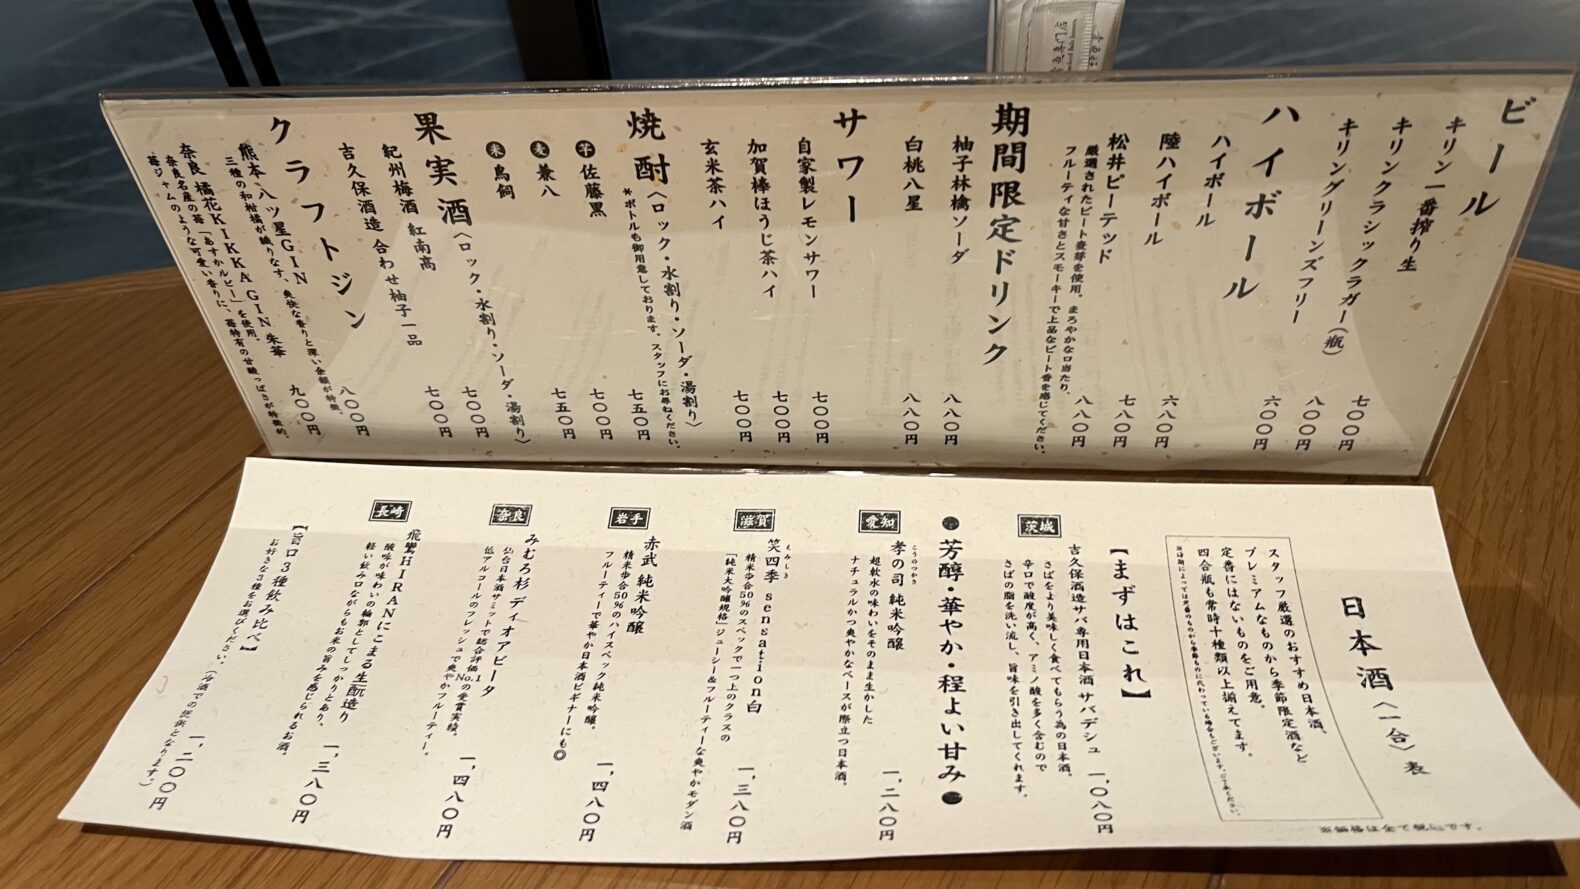 ビール
キリン一番搾り生 七〇〇円
キリンクラシックラガー(瓶) 八〇〇円
キリングリーンズフリー 六〇〇円
ハイボール
ハイボール 六八〇円
陸ハイボール 七八〇円
松井ピーテッド 八八〇円
厳選されたピート麦芽を使用。まろやかな口当たり、
フルーティな甘さとスモーキーで上品なピート香を感じてください。
期間限定ドリンク
柚子林檎ソーダ 八八〇円
白桃八星 八八〇円
サワー
自家製レモンサワー 七〇〇円
加賀棒ほうじ茶ハイ 七〇〇円
玄米茶ハイ 七〇〇円
焼酎〈ロック・水割り・ソーダ・湯割り〉
*ボトルも御用意しております。スタッフにお尋ねください。
芋 佐藤黒 七五〇円
麦 兼八 七〇〇円
米 鳥飼 七五〇円
果実酒〈ロック・水割り・ソーダ・湯割り〉
紀州梅酒 紅南高 七〇〇円
吉久保酒造 合わせ柚子一品 七〇〇円
クラフトジン
熊本 八ツ星GIN 八〇〇円
三種の和柑橘が織りなす、爽快な香りと深い余韻が特徴。
奈良 橘花KIKKA GIN 朱華 九〇〇円
奈良名産の苺「あすかルビー」を使用。
苺ジャムのような可愛い香りに、苺特有の甘酸っぱさが特徴的。
日本酒〈一合〉表
スタッフ厳選のおすすめ日本酒。
プレミアムなものから季節限定酒など
定番にはないものをご用意。
四合瓶も常時十種類以上揃えてます。
【まずはこれ】
茨城
吉久保酒造サバ専用日本酒 サバデシュ 一,〇八〇円
さばをより美味しく食べてもらう為の日本酒。
辛口で酸度が高く、アミノ酸を多く含むので
さばの脂を洗い流し、旨味を引き出してくれます。
●芳醇・華やか・程よい甘み●
愛知
こうのつかさ
孝の司 純米吟醸 一,二八〇円
超軟水の味わいをそのまま生かした
ナチュラルかつ爽やかなベースが際立つ日本酒。
滋賀
えみしき
笑四季 sensation白 一,三八〇円
精米歩合50%のスペックで一つ上のクラスの
「純米大吟醸規格」ジューシー&フルーティーな爽やかモダン酒
岩手
赤武 純米吟醸 一,四八〇円
精米歩合50%のハイスペック純米吟醸。
フルーティーで華やか日本酒ビギナーにも◎
奈良
みむろ杉 ディオアビータ 一,四八〇円
仙台日本酒サミットで総合評価No.1の受賞実績。
低アルコールのフレッシュで爽やかフルーティー。
長崎
飛鸞HIRANにこまる生酛造り 一,三八〇円
酸味が味わいの輪郭としてしっかりとあり、
軽い飲み口ながらもお米の旨みを感じられるお酒。
【旨口3種飲み比べ】 一,二〇〇円
お好きな3種をお選びください。(冷酒での提供となります。)